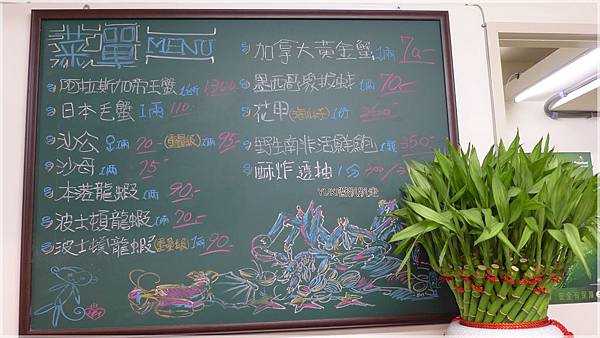 菜單 MENU
阿拉斯加帝王蟹 1斤 1300
日本毛蟹 1兩 110.-
沙公 1兩 70.- (重量級) 1兩 95.-
沙母 1兩 75.-
本港龍蝦 1兩 90.-
波士頓龍蝦 1兩 70.-
波士頓龍蝦 (重量級) 1兩 90.-
加拿大黃金蟹 1兩 70.-
墨西哥象拔蚌 1兩 70.-
花甲 1份 250.-
野生南非活鮮鮑 1顆 350.-
酥炸透抽 1分 300
YUKI醬趴趴走